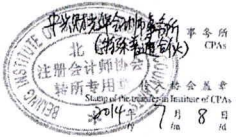 中兴财光华会计师事务所
(特殊普通合伙)
事务所
CPAs
北
注册会计师协会
转所专用章
转入协会盖章
Stamp of the transfer-in Institute of CPAs
2014年7月8日
/y /m /d
BEIJING INSTITUTE